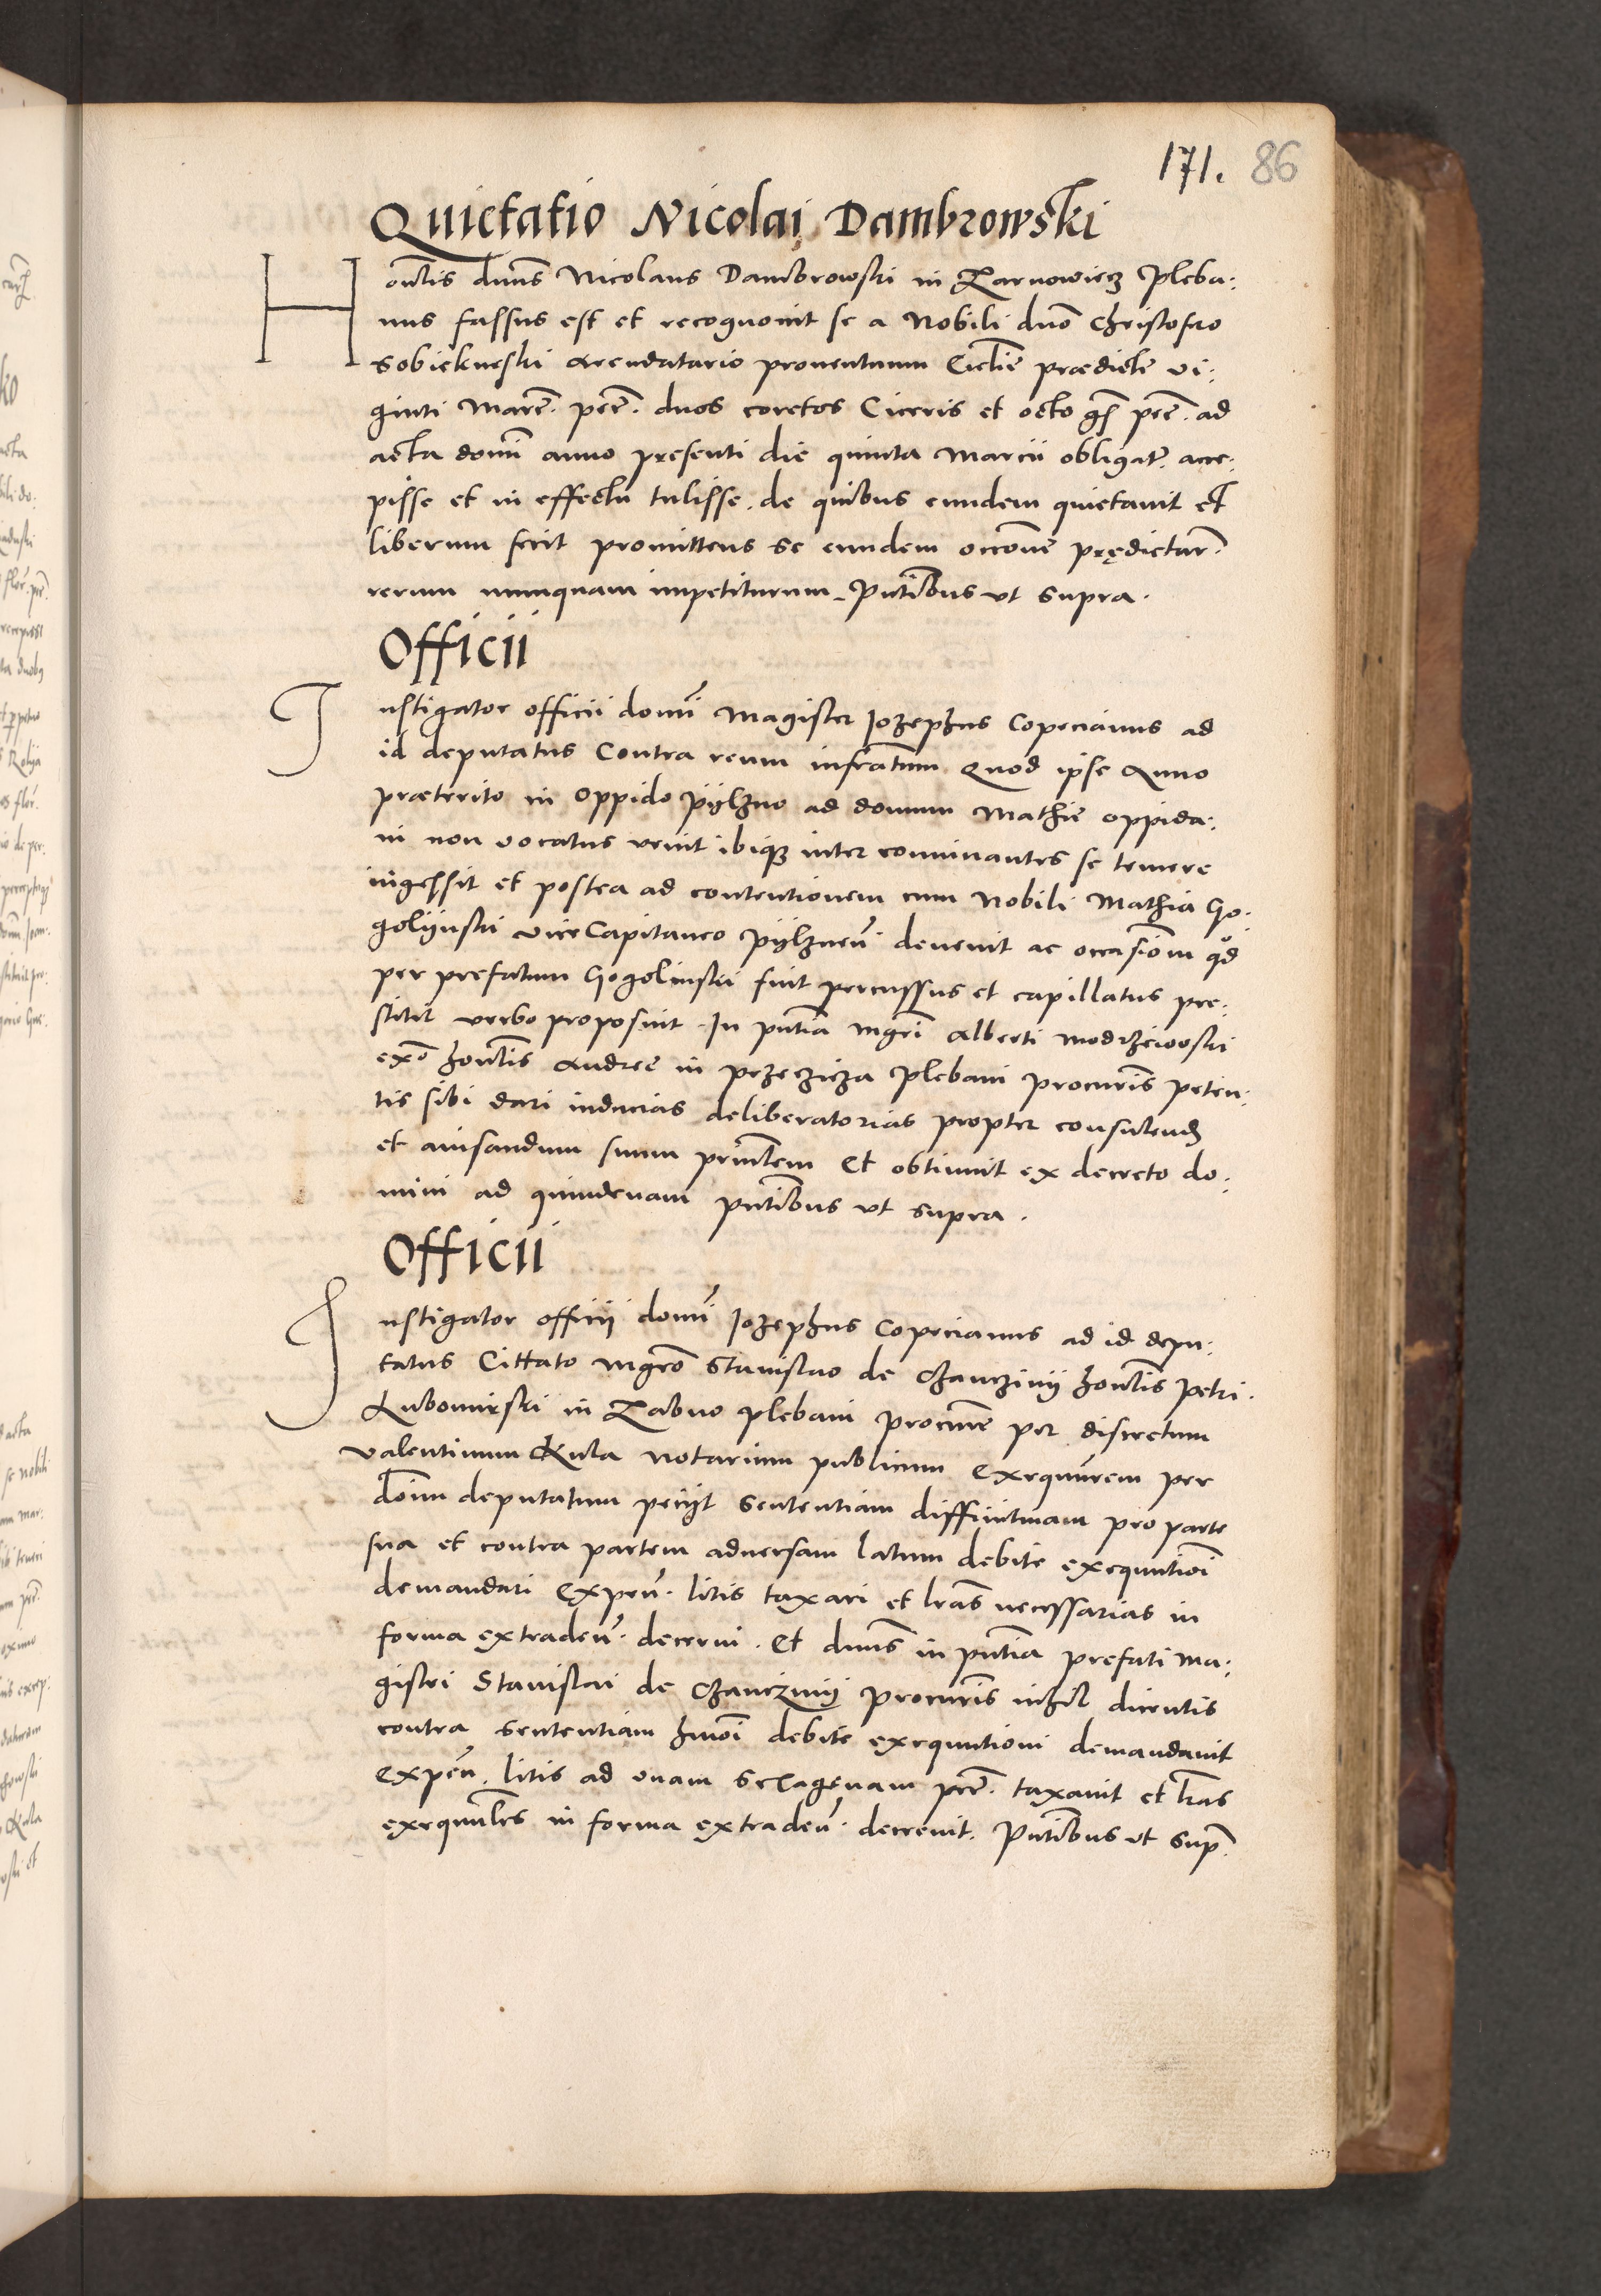 171. 86
Quietatio Nicolai Dambrowski
Hontis dnus Nicolaus Dambrowski in Zarnowiecz Pleba:
nus fassus est et recognouit se a Nobili dno Christofero
Sobiekurski Arendatario prouentuum Ecclie prædicte vi:
ginti Marc. pec. duos coretos Ciceris et octo gs pec. ad
acta domi anno presenti die quinta Marcii obligat. acce:
pisse et in effectu tulisse. de quibus eundem quietauit et
liberum fecit promittens se eundem occone prędictar.
rerum nunquam impetiturum. Pntibus vt supra.
Officii
Instigator officii domi Magister Jozephus Copecianus ad
id deputatus Contra reum infratum Quod ipse Anno
præterito in Oppido Pylzno ad domum Mathie oppida:
ni non vocatus venit ibiqz inter conuiuantes se temere
ingessit et postea ad contentionem cum Nobili Mathia Go:
golynski viceCapitaneo Pylznen. deuenit ac occasiom qd
per prefatum Gogolinski fuit percussus et capillatus pre:
stitit verbo proposuit. In pntia mgri Alberti Modrzeiowski
exo hontis Andree in Przeczicza Plebani procuris peten:
tis sibi dari inducias deliberatorias propter consulend
et auisandum suum prinlem Et obtinuit ex decreto do:
mini ad quindenam pntibus vt supra.
Officii
Instigator officij domi Jozephus Copecianus ad id depu:
tatus Cittato mgro Stanislao de Chanczinij hontis Petri
Lubomirski in Zabno plebani procure per discretum
Valentinum Kula notarium publicum Exequurem per
doim deputatum pecijt sententiam diffinitinam pro parte
sua et contra partem aduersam latum debite exequutioi
demandari Expen. litis taxari et lras necessarias in
forma extraden. decerni. Et dnus in pntia prefati Ma:
gistri Stanislai de Chanczinij procuris nihil dicentis
contra sententiam hmoi debite exequutioni demandauit
Expen. litis ad vnam sexagenam pec. taxauit et lras
exequules in forma extraden. decreuit. Pntibus vt sup.